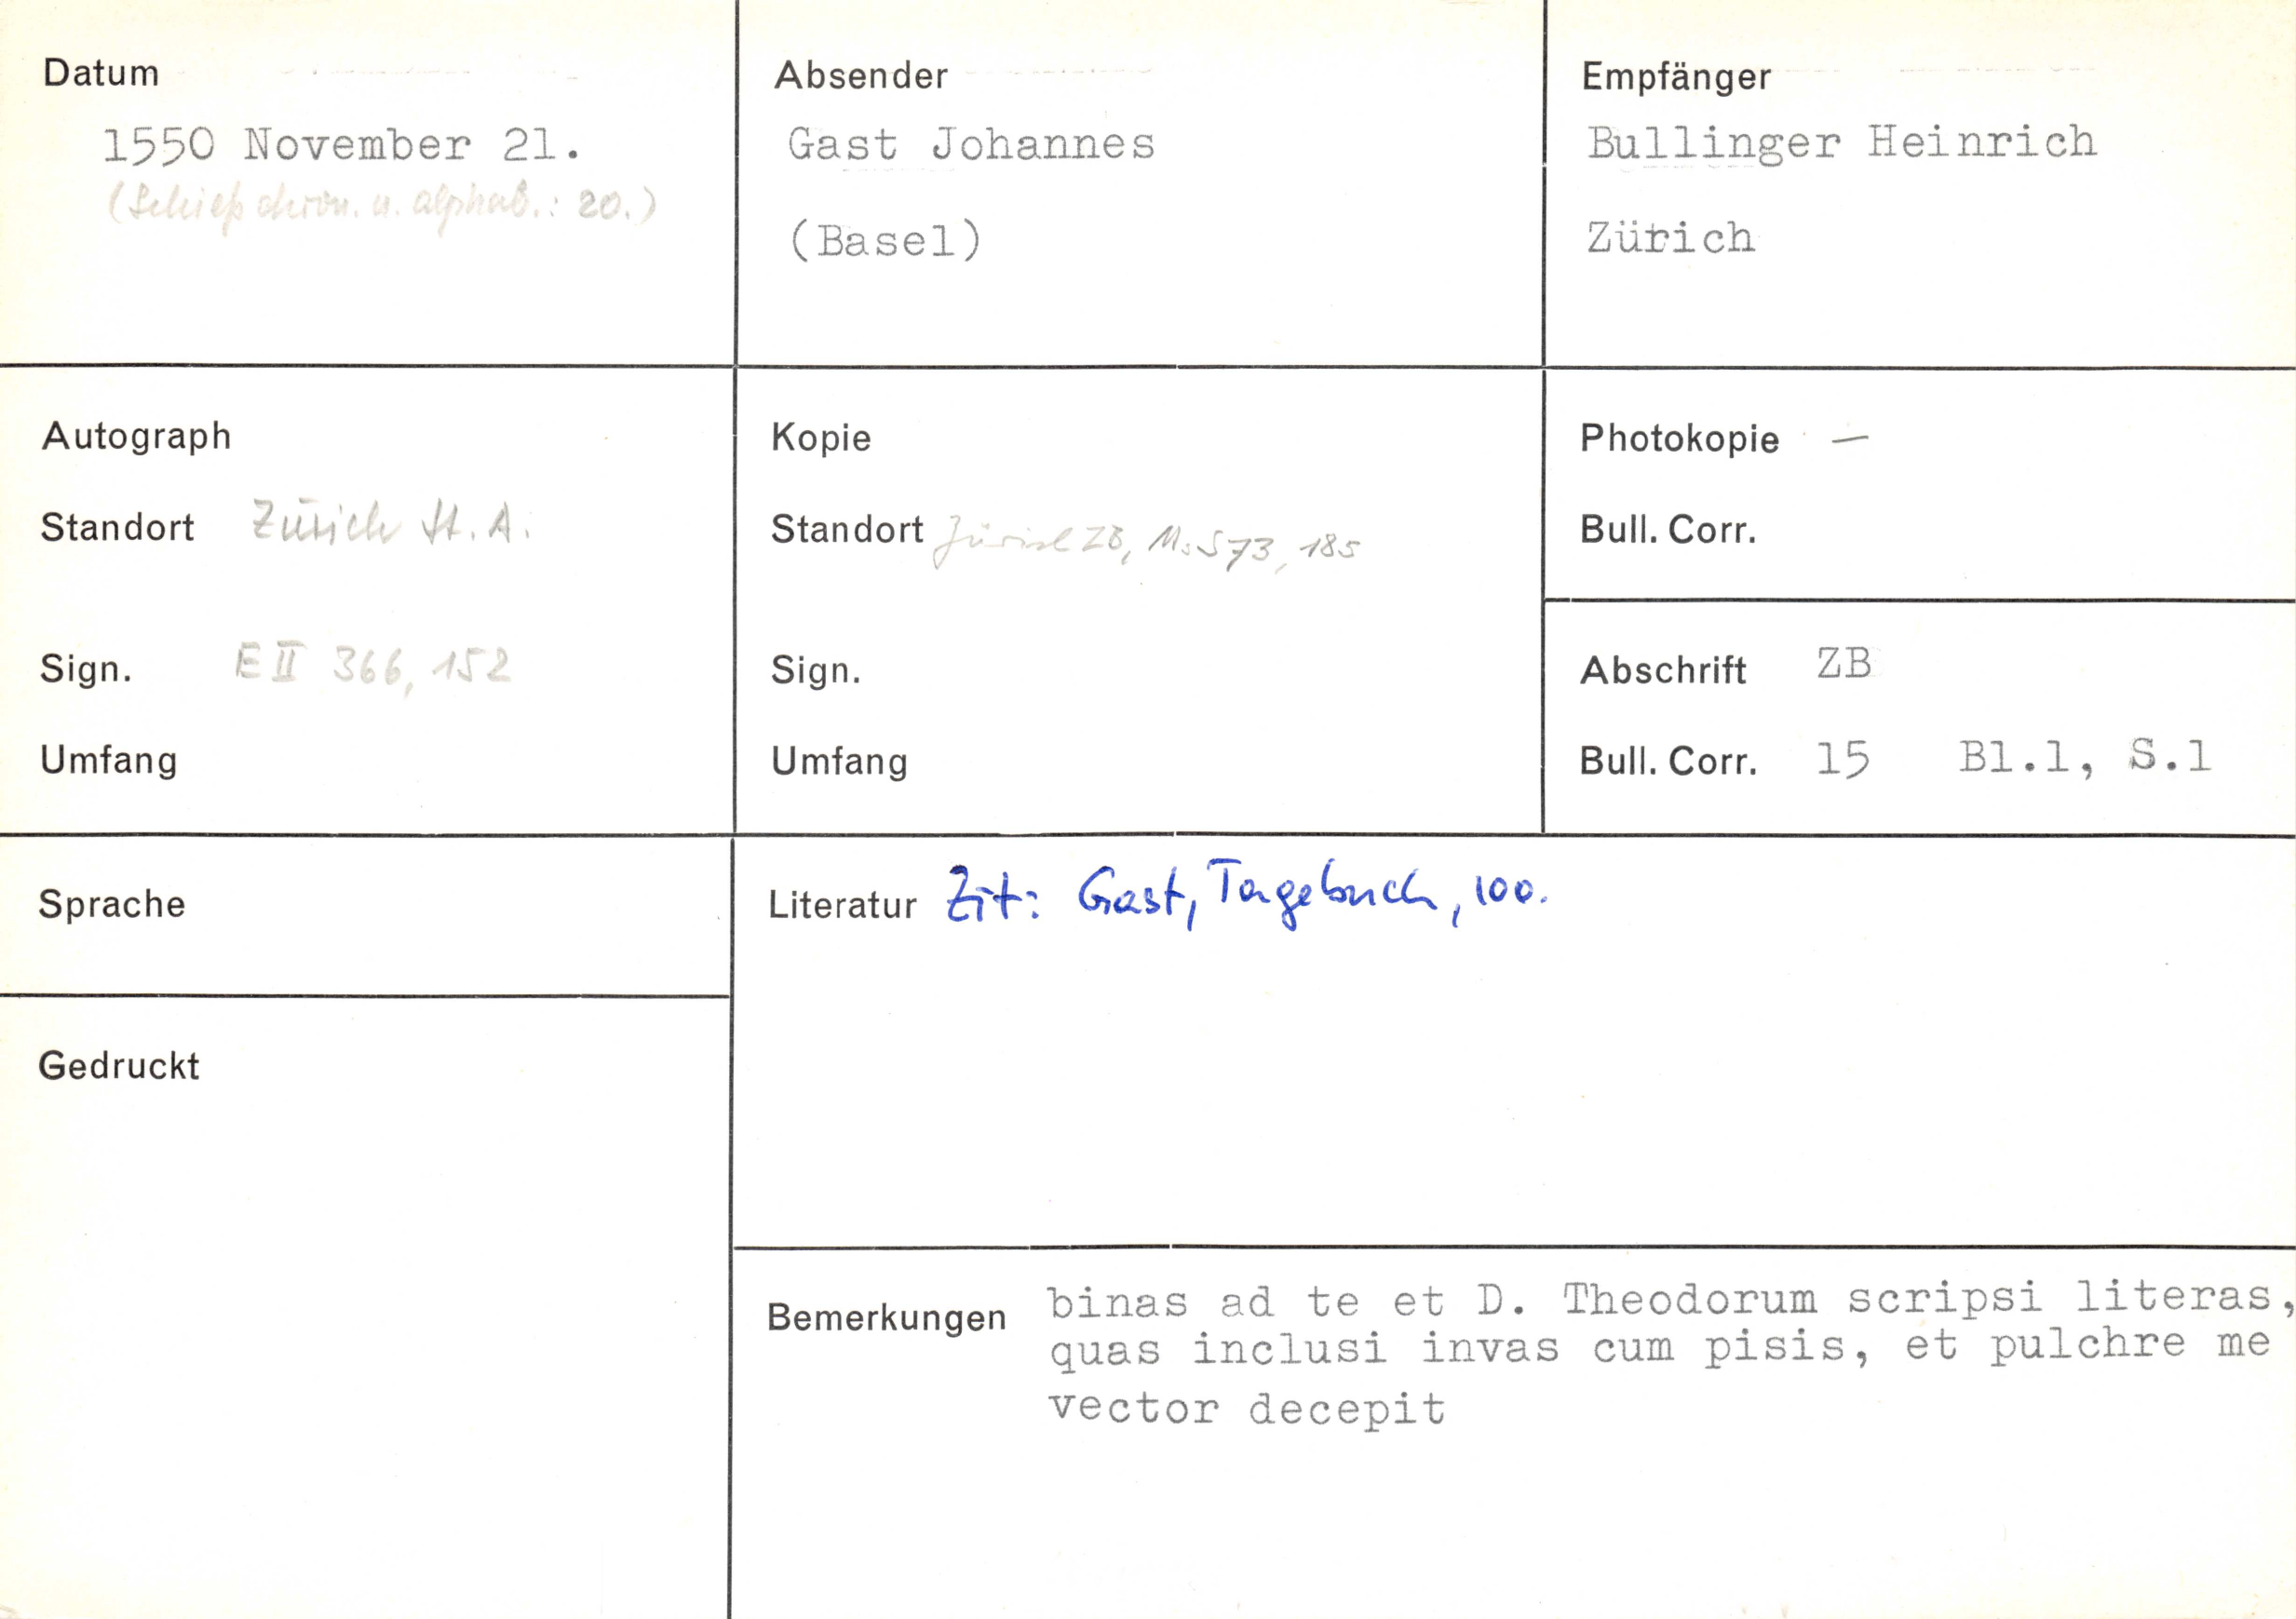 Datum
1550 November 21.
(Schieß chron. u. alphab.: 20.)
Absender
Gast Johannes
(Basel)
Empfänger
Bullinger Heinrich
Zürich
Autograph
Standort Zürich St. A.
Sign. E II 366, 152
Umfang
Kopie
Standort Zürich ZB, Ms S 73, 185
Sign.
Umfang
Photokopie —
Bull. Corr.
Abschrift ZB
Bull. Corr. 15 Bl.1, S.1
Sprache
Gedruckt
Literatur Zit: Gast, Tagebuch, 100.
Bemerkungen binas ad te et D. Theodorum scripsi literas,
quas inclusi invas cum pisis, et pulchre me
vector decepit